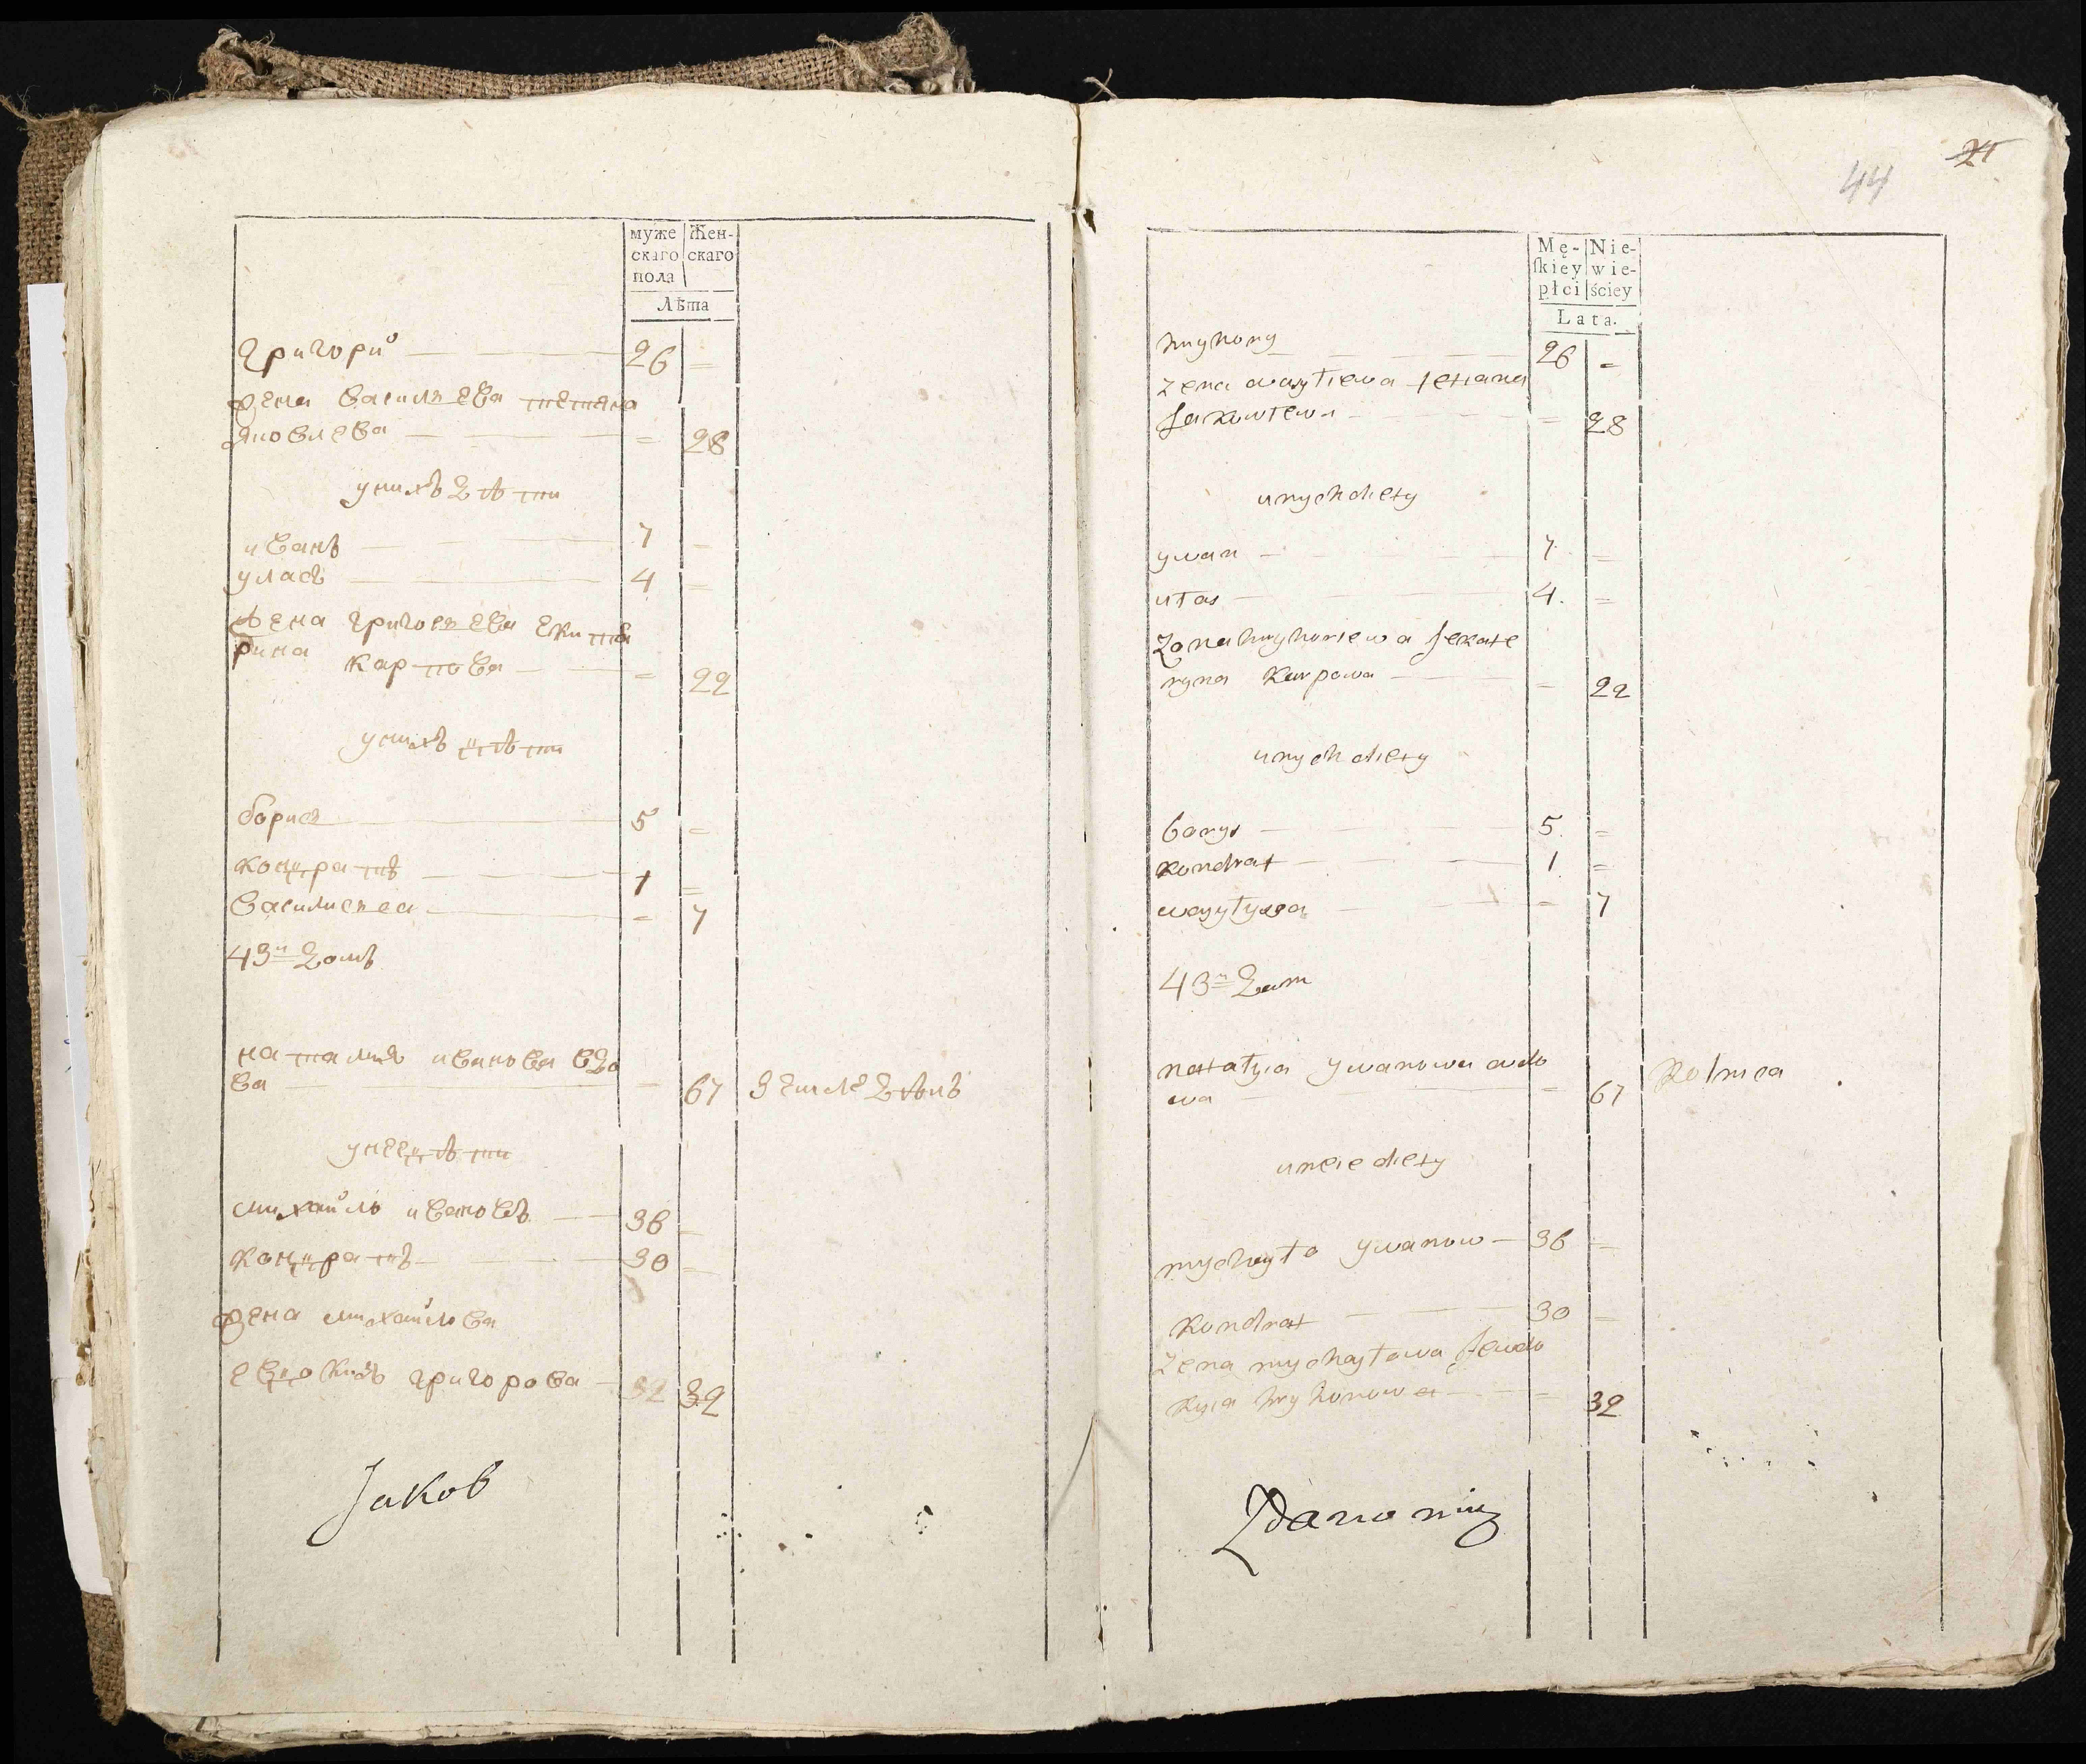 муже Жен-
скаго скаго
пола
Лѣта
григорий 26 =
жена васильева тетяна
яковлева = 28
у нихъ дѣти
иванъ 7 =
уласъ 4 =
жена григорьева екате
рина карпова = 22
у нихъ дѣти
борисъ 5 =
кондратъ 1 =
василиса = 7
43й домъ
наталия иванова вдо
ва = 67 земледѣлъ
у нее дѣти
михайло ивановъ 36 =
кондратъ 30 =
жена михайлова
евдокия григорова 32 32
Jakob
21
44
Mę- Nie-
skiey wie-
płci ściey
Lata.
hryhory 26 =
zena wasylewa tetiana
Jakowlewa = 28
unych diety
ywan 7. =
ułas 4. =
zona hryhoriewa Jekate
ryna Karpowa = 22
unych diety
borys 5. =
kondrat 1 =
wasyłysa = 7
43m Dom
natałyia ywanowa wdo
wa = 67 Rolnica
uneie diety
mychayło ywanow 36 =
Kondrat 30 =
zena mychayłowa Jewdo
kyia hryhorowa = 32
Zdanowicz